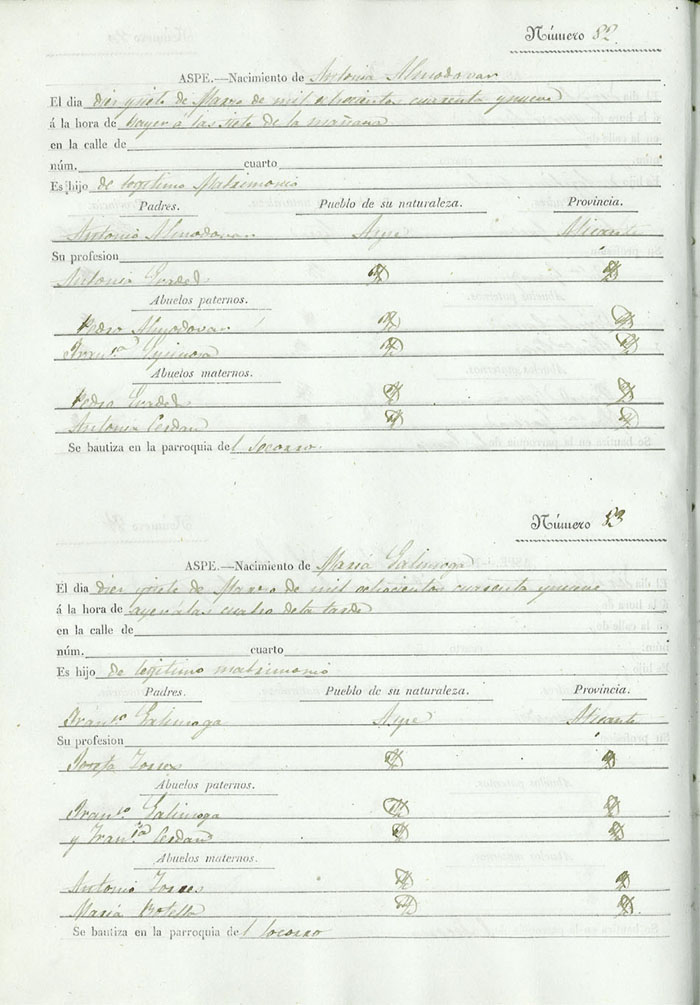 Número 52
ASPE.—Nacimiento de Antonia Almodovar
El dia diez y siete de Marzo de mil ochocientos cuarenta y nueve
á la hora de hayer á las siete de la mañana
en la calle de
núm. cuarto
Es hijo de legitimo Matrimonio
Padres. Pueblo de su naturaleza. Provincia.
Antonio Almodovar Aspe Alicante
Su profesion
Antonia
Abuelos paternos.
Pedro Almodovar
Fran.ca
Abuelos maternos.
Pedro
Antonia Cerdan
Se bautiza en la parroquia del Socorro
Número 53
ASPE.—Nacimiento de Maria Galinsoga
El dia diez y siete de Marzo de mil ochocientos cuarenta y nueve
á la hora de ayer a las cuatro de la tarde
en la calle de
núm. cuarto
Es hijo de legitimo matrimonio
Padres. Pueblo de su naturaleza. Provincia.
Fran.co Galinsoga Aspe Alicante
Su profesion
Josefa Torres
Abuelos paternos.
Fran.co Galinsoga
y Fran.ca Cerdan
Abuelos maternos.
Antonio Torres
Maria Botella
Se bautiza en la parroquia del Socorro